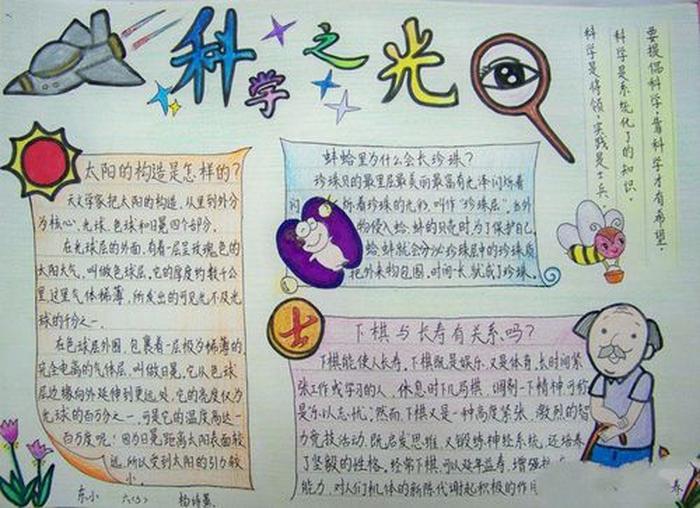 科学之光
要提倡科学,靠科学才有希望。
科学是系统化了的知识。
科学是将领,实践是士兵。
太阳的构造是怎样的?
天文学家把太阳的构造,从里到外分
为核心、光球、色球和日冕四个部分。
在光球层的外面,有着一层呈玫瑰色的
太阳大气,叫做色球层。它的厚度约数千公
里,这里气体稀薄,所发出的可见光不及光
球的千分之一。
在色球层外围,包裹着一层极为稀薄的,
完全电离的气体层,叫做日冕。它从色球
层边缘向外延伸到更远处,它的亮度仅为
光球的百万分之一,可是它的温度高达一
百万度呢!因为日冕距离太阳表面较
远,所以受到太阳的引力较
小。
东小 六(3)
蚌蛤里为什么会长珍珠?
珍珠贝的最里层最美丽最富有光泽闪烁着
闪烁着珍珠的光彩,叫作“珍珠层”。当外
物侵入蛤、蚌的贝壳时,为了保护自己,
蛤、蚌就会分泌珍珠层中的珍珠质
把外来物包围,时间一长,就成了珍珠。
士
下棋与长寿有关系吗?
下棋能使人长寿,下棋既是娱乐,又是体育,长时间紧
张工作或学习的人,休息时下几局棋,调剂一下精神可称
是乐以忘忧;然而下棋又是一种高度紧张、激烈的智
力竞技活动,既启发思维,又锻炼神经系统,还培养
了坚毅的性格。经常下棋,可以延年益寿,增强
能力,对人们机体的新陈代谢起积极的作用